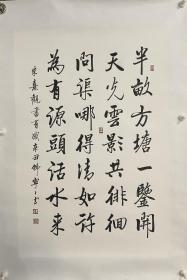 半畝方塘一鑒開
天光雲影共徘徊
問渠哪得清如許
為有源頭活水来
宋朱熹觀書有感